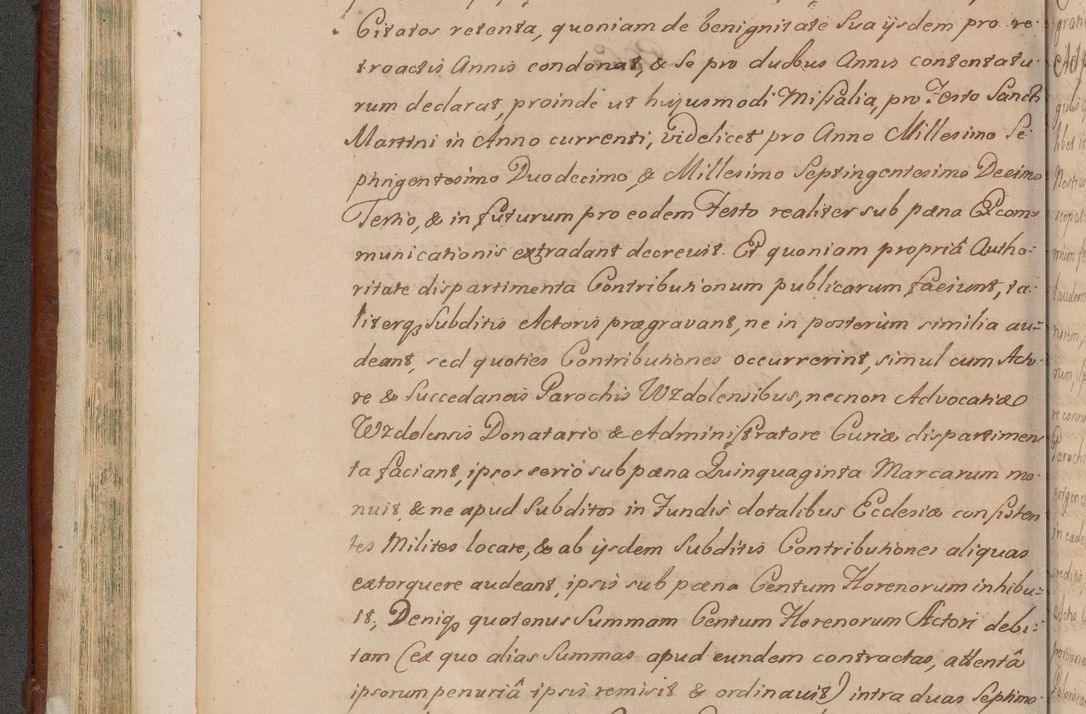 Citatos retenta, quoniam de benignitate sua ijsdem pro re
troactis Annis condonat, & se pro duobus Annis contentatu
rum declarat, proinde ut hujusmodi Missalia, pro Festo Sancti
Martini in Anno currenti, videlicet pro Anno Millesimo Se
ptingentesimo Duodecimo, & Millesimo Septingentesimo Decimo
Tertio, & in futurum pro eodem Festo realiter sub pæna Excom=
municationis extradant decrevit. Et quoniam propriâ Autho:
ritate dispartimenta Contributionum publicarum faciunt, ta
literq3 Subditis Actoris prægravant, ne in posterum similia au=
deant, sed quoties Contributiones occurrerint, simul cum Acto
re & Succedaneis Parochis Wzdolensibus, necnon Advocatiæ
Wzdolensis Donatario & Administratore Curiæ dispartimen
ta faciant, ipsos serio sub pæna Quinquaginta Marcarum mo
nuit, & ne apud Subditos in Fundis dotalibus Ecclesiæ consisten
tes Milites locare, & ab ijsdem Subditis Contributiones aliquas
extorquere audeant, ipsis sub pæna Centum Florenorum inhibu=
it; Deniq3 quatenus Summam Centum Florenorum Actori debi=
tam (ex quo alias Summas apud eundem contractas, attentâ
ipsorum penuriâ ipsis remisit & ordinavit) intra duas Septimo